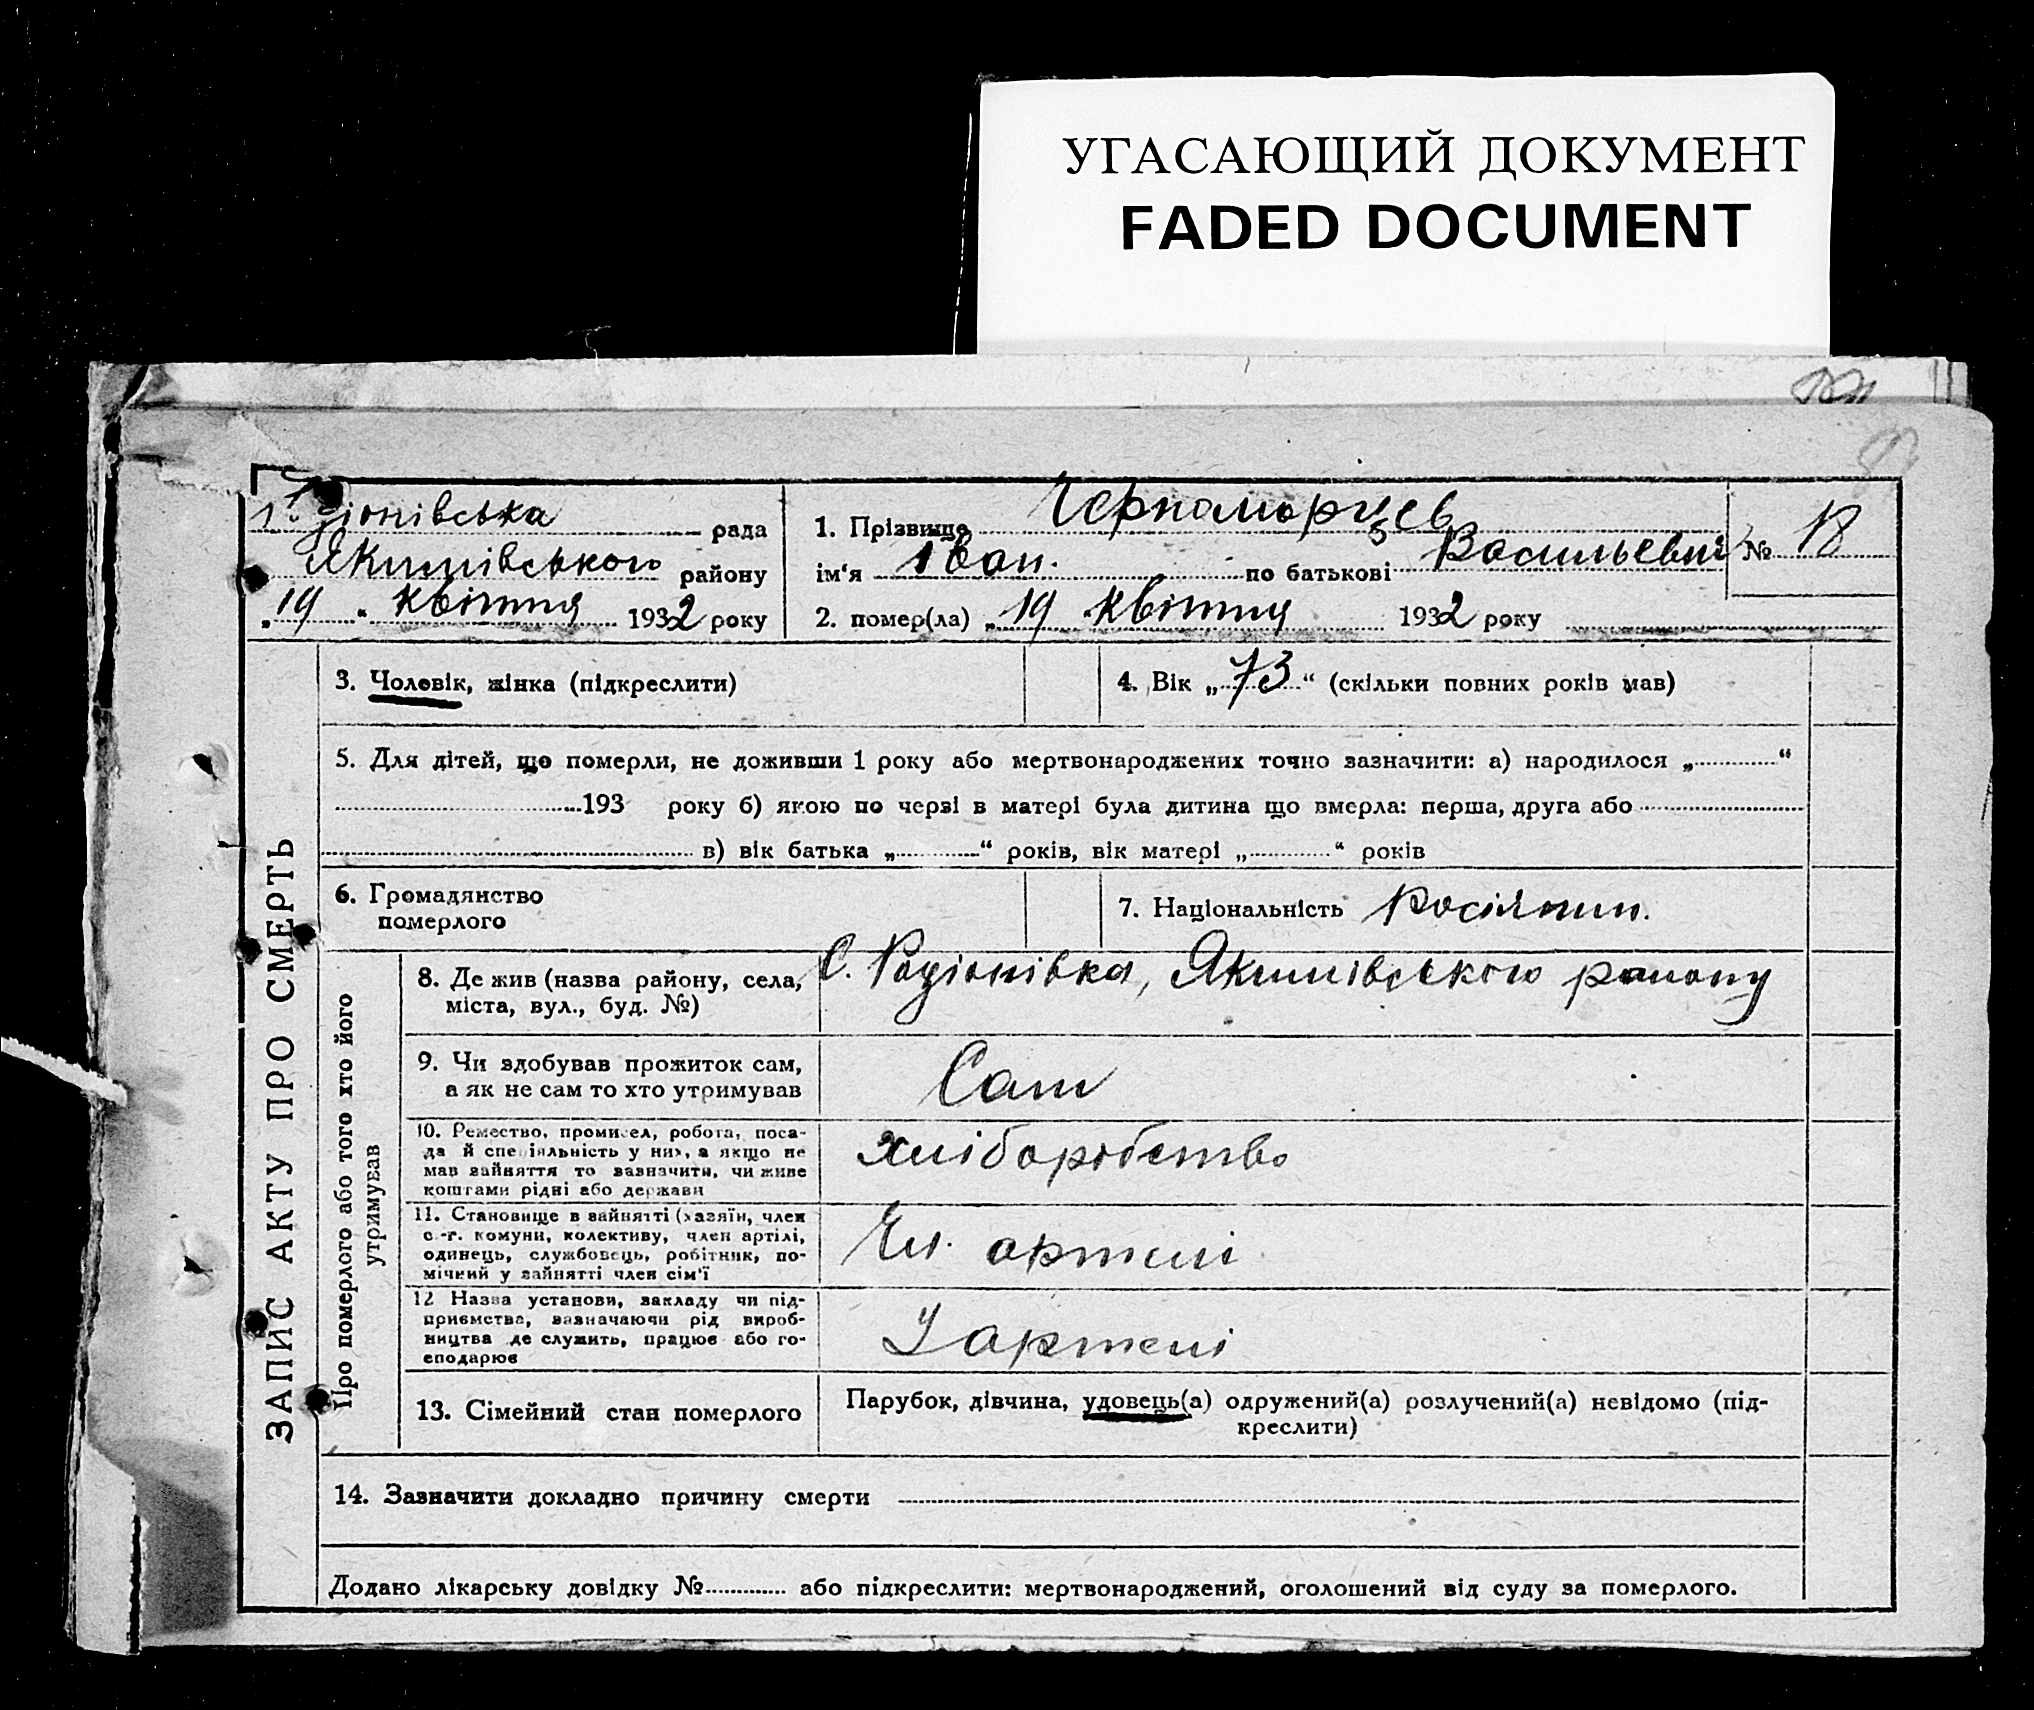 УГАСАЮЩИЙ ДОКУМЕНТ
FADED DOCUMENT
Родіонівська рада
Якимівського району
„19“ квітня 1932 року
1. Прізвище Черноморцев
ім'я Іван. по батькові Васильевич
№ 18
2. помер(ла) „19“ квітня 1932 року
ЗАПИС АКТУ ПРО СМЕРТЬ
3. Чоловік, жінка (підкреслити)
4. Вік „73“ (скільки повних років мав)
5. Для дітей, що померли, не доживши 1 року або мертвонароджених точно зазначити: а) народилося „ “
193 року б) якою по черзі в матері була дитина що вмерла: перша, друга або
в) вік батька „ “ років, вік матері „ “ років
6. Громадянство
померлого
7. Національність Росіянин.
Про померлого або того хто його
утримував
8. Де жив (назва району, села,
міста, вул., буд. №)
С. Родіонівка, Якимівського району
9. Чи здобував прожиток сам,
а як не сам то хто утримував
Сам
10. Ремество, промисел, робота, поса-
да й спеціяльність у них, а якщо не
мав зайняття то зазначити, чи живе
коштами рідні або держави
хліборобство
11. Становище в зайнятті (хазяїн, член
с.-г. комуни, колективу, член артілі,
одинець, службовець, робітник, по-
мічний у зайнятті член сім'ї
Чл. артелі
12 Назва установи, закладу чи під-
приємства, зазначаючи рід вироб-
ництва де служить, працює або го-
сподарює
У артелі
13. Сімейний стан померлого
Парубок, дівчина, удовець(а) одружений(а) розлучений(а) невідомо (під-
креслити)
14. Зазначити докладно причину смерти
Додано лікарську довідку № або підкреслити: мертвонароджений, оголошений від суду за померлого.